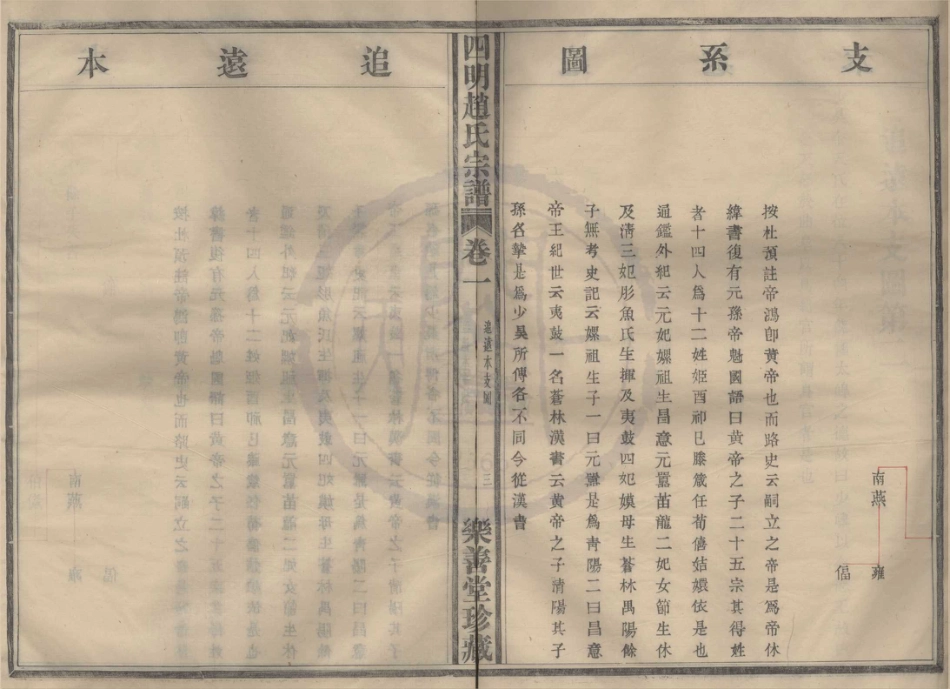 支系圖
南燕
雍
偪
按杜預註帝鴻卽黃帝也而路史云嗣立之帝是爲帝休
緯書復有元孫帝魁國語曰黃帝之子二十五宗其得姓
者十四人爲十二姓姬酉祁巳滕箴任荀僖姞嬛依是也
通鑑外紀云元妃嫘祖生昌意元囂苗龍二妃女節生休
及淸三妃彤魚氏生揮及夷鼓四妃嫫母生蒼林禺陽餘
子無考史記云嫘祖生子一曰元囂是爲靑陽二曰昌意
帝王紀世云夷鼓一名蒼林漢書云黃帝之子淸陽其子
孫名摯是爲少昊所傳各不同今從漢書
四明趙氏宗譜
卷一
追遠本支圖
三
樂善堂珍藏
追遠本